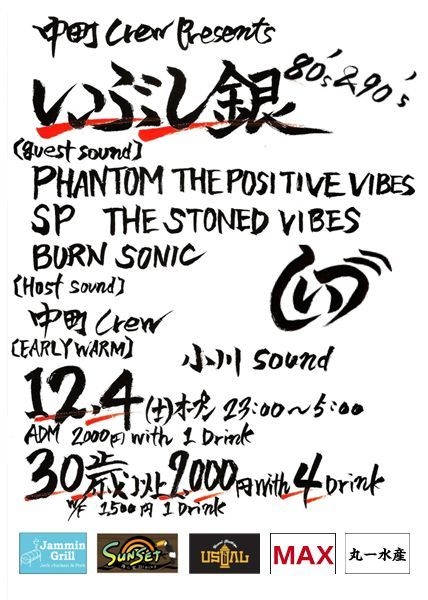 中町 Crew Presents
いぶし銀 80's & 90's
[guest sound]
PHANTOM THE POSITIVE VIBES
SP THE STONED VIBES
BURN SONIC
[Host sound]
中町 Crew
[EARLY WARM]
小川 sound
12.4 (土) オープン 23:00〜5:00
ADM 2000円 with 1 Drink
30歳以上 2,000円 with 4 Drink
W/F 1500円 1 Drink
Jammin Grill
SUNSET
USUAL
MAX
丸一水産